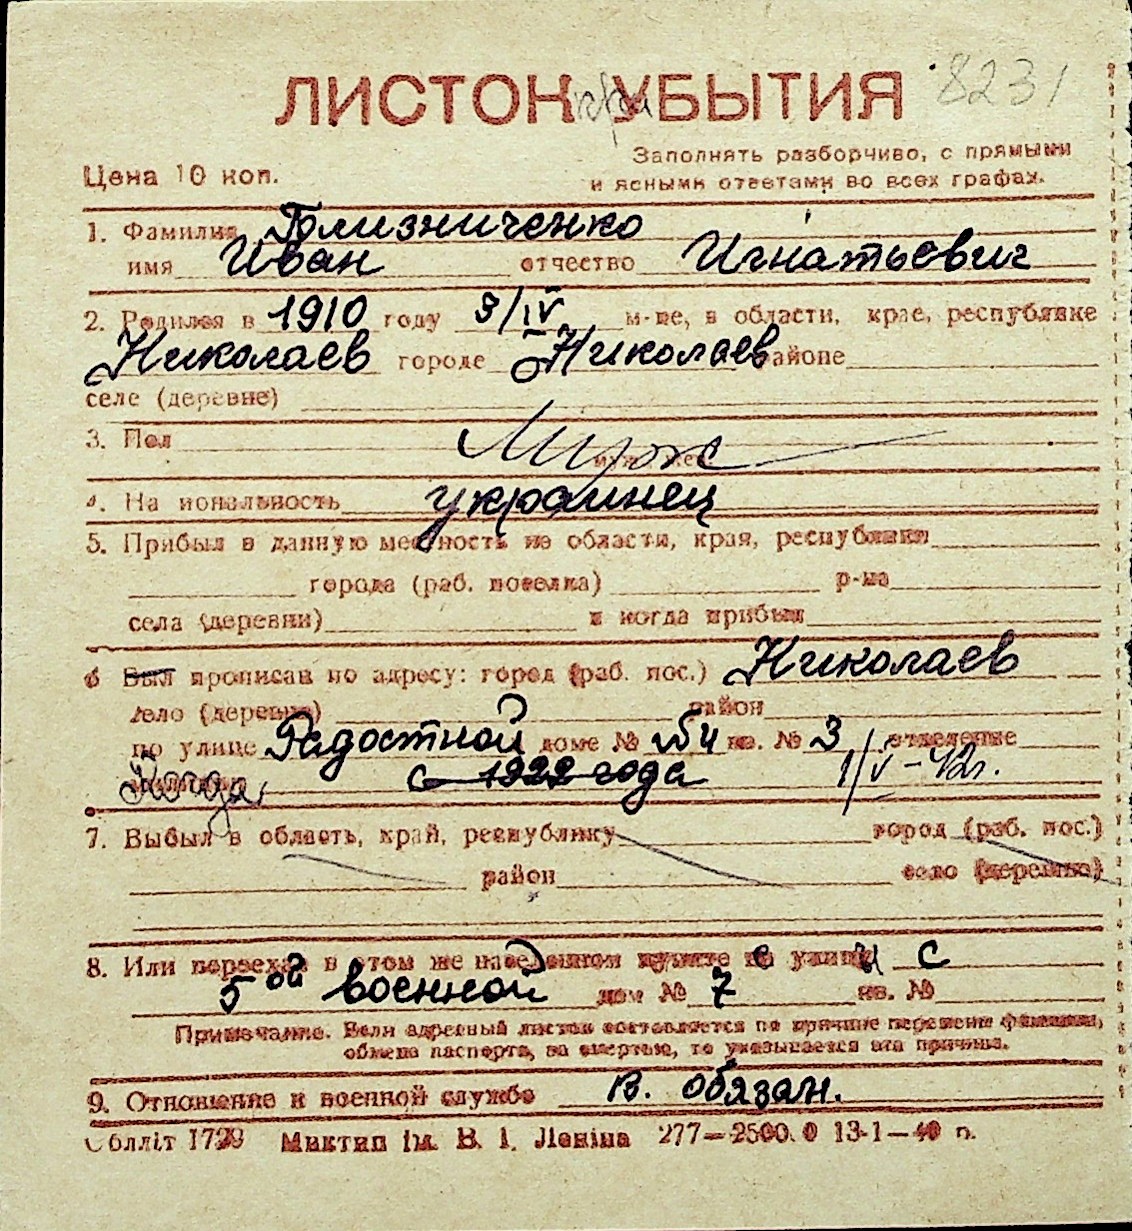 ЛИСТОК УБЫТИЯ 8231
Заполнять разборчиво, с прямыми
Цена 10 коп. и ясными ответами во всех графах.
1. Фамилия Близниченко
имя Иван отчество Игнатьевич
2. Родился в 1910 году 9/IV м-це, в области, крае, республике
Николаев городе Николаев районе
селе (деревне)
3. Пол Муж
4. Национальность украинец
5. Прибыл в данную местность из области, края, республики
города (раб. поселка) р-на
села (деревни) и когда прибыл
6 Был прописан по адресу: город (раб. пос.) Николаев
село (деревне) район
по улице Радостной доме № кв. № 3 отделение
Когда с 1922 года 1/V-42г.
7. Выбыл в область, край, республику город (раб. пос.)
район село (деревню)
8. Или переехал в этом же населенном пункте с улицы с
5ой военной дом № 7 кв. №
Примечание. Если адресный листок составляется по причине перемены фамилии,
обмена паспорта, за смертью, то указывается эта причина.
9. Отношение к военной службе в. обязан.
Обллiт 1729 Миктип iм. В. I. Ленiна 277—2500.0 13-1—40 р.